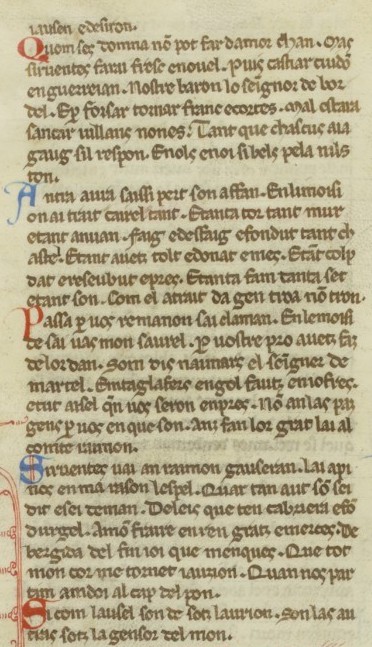 lausen edesiron.
Quom ses domna nõ pot far damor chan. Mas
siruentes farai fresc enouel. Puis castiar cuido
en guerreian. Nostre baron lo seignor de bor
del. E ꝑ forsar tornar franc ecortes. Mal estara
sancar uillans non es. Tant que chascus aia
gaug sil respon. E nols enoi sibels pela nils
ton.
Anta aura sai si pert son affan. En limosi
on ai trait cairel tant. E tanta tor tant mur
et ant anuan. Fraig e desfaig e fondut tant ch
astel. E tant auer tolt e donat e mes. E tãt colp
dat e reseubut e pres. E tanta fam tanta set
e tant son. Com el atrait da gen tro a nõtron.
Passa ꝑ uos remanon sai claman. En lemosi
de sai uas mon saurel. ꝑ uostre pro auetz faiz
delor dan. Som dis naimars el seigner de
martel. En taillafers en golfautz en iofres.
e tut aisel qñ uos seron enpres. Nõ an las pai
gens ꝑ uos en que son. Anz fan lor grat lai al
comte raimon.
Siruentes uai an raimon gauseran. Lai a pi
nos en ma rason lespel. Quar tan aut sõ sei
dit e sei deman. De leis que ten cabriera e fõ
durgel. A mõ fraire en ren gratz emerces. De
bergida del fin ioi que men ques. Que tot
mon cor men tornet iauzion. Quan nos par
tim amdoi al cap del pon.
Si com lausel son de sotz laurion. Son las au
tras sotz la gensor del mon.